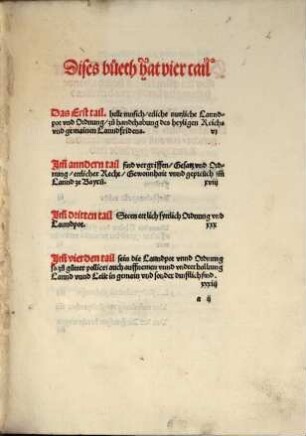 Dises bůech hat vier tail
Das Erst tail. helt etlich nutzliche Lanndt-
pot vnd Ordnung / zů handthabung des heyligen Reichs
vnd gemainen Lanndfridens. vj
Im anndern tail sind vergriffen / Gesatz vnd Ord-
nung / etlicher Recht / Gewonheit vnnd gepreüch im
Lannd ze Bayrn. xviij
Im dritten tail Steen etlich Ordnung vnd
Lanndpot. xxx
Im vierden tail sein die Lanndpot vnnd Ordnung
so zů gůter pollicei auch auffnemen vnnd vnderhalltung
Lannd vnnd Leüt in gemain vnd sonder dienstlich sind.
a ij